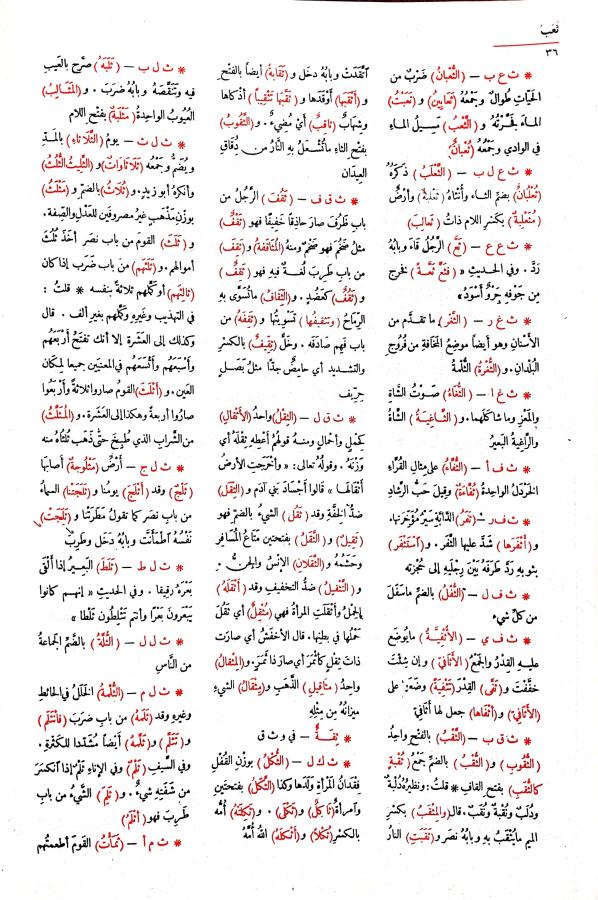 ثعب
٣٦
* ث ع ب — (الثُّعْبانُ) ضَرْبٌ من
الحَيَّاتِ طُوالٌ وجَمْعُهُ (ثَعابِينُ) و (ثَعَبْتُ)
الماءَ فَجَّرْتُهُ و (الثَّعْبُ) مَسِيلُ الماءِ
في الوادي وجَمْعُهُ (ثُعْبانٌ)
* ث ع ل ب — (الثَّعْلَبُ) ذَكَرُهُ
(ثُعْلُبانٌ) بضم الثاء وأُنْثاهُ (ثَعْلَبَةٌ) وأرضٌ
(مُثَعْلِبَةٌ) بكَسْرِ اللام ذاتُ (ثعالِبَ)
* ث ع ع — (ثَعَّ) الرَّجُلُ قَاءَ وبابُهُ
رَدَّ . وفي الحديثِ « (فثَعَّ ثَعَّةً) فخرج
مِن جَوْفِهِ جِرْوٌ أَسْوَدُ »
* ث غ ر — (الثَّغْرُ) ما تقدَّم من
الأَسْنانِ وهو أيضاً موضِعُ المَخَافَةِ من فُرُوجِ
البُلْدانِ . و (الثُّغْرَةُ) الثُّلْمَةُ
* ث غ ا — (الثُّغَاءُ) صَوْتُ الشَّاةِ
والمَعْزِ وما شاكَلَهما . و (الثَّاغِيَةُ) الشَّاةُ
والرَّاغِيَةُ البَعِيرُ
* ث ف أ — (الثُّفَّاءُ) على مِثالِ القُرَّاءِ
الخَرْدَلُ الواحدةُ (ثُفَّاءَةٌ) وقيلَ حَبُّ الرَّشادِ
* ث ف ر — (ثَفَرُ) الدَّابَّةِ سَيْرُ مُؤَخَّرِها .
و (أَثْفَرَها) شَدَّ عليها الثَّفَرَ . و (اسْتَثْفَرَ)
بثوبِهِ رَدَّ طَرَفَهُ بَيْنَ رِجْلَيْهِ إلى حُجْزَتِهِ
* ث ف ل — (الثُّفْلُ) بالضمِّ ما سَفَلَ
من كلِّ شيء
* ث ف ي — (الأُثْفِيَّةُ) ما يُوضَعُ
عليهِ القِدْرُ والجمْعُ (الأَثَافيُّ) وإن شِئْتَ
خفَّفْتَ و (ثَفَّى) القِدْرَ (تَثْفِيَةً) وضَعَها على
(الأَثَافيِّ) و (أَثْفاها) جعل لها أَثَافيَّ
* ث ق ب — (الثَّقْبُ) بالفتحِ واحِدُ
(الثُّقُوبِ) و (الثُّقْبُ) بالضمِّ جَمْعُ (ثُقْبةٍ)
(كالثُّقَبِ) بفتح القافِ * قلتُ: ونظيرُهُ دُلْبةٌ
ودُلْبٌ وثُقْبةٌ وثُقَبٌ . قال و(المِثْقَبُ) بكسْرِ
الميم ما يُثْقَبُ به وبابُهُ نصَرَ و (ثَقَبَتِ) النارُ
اتَّقَدَتْ وبابُهُ دخَل و (ثَقابَةً) أيضاً بالفتْحِ
و (أَثْقَبَها) أَوْقَدَها و (ثقَّبَها تَثْقِيباً) أذْكاها
وشِهابٌ (ثاقِبٌ) أي مُضِيءٌ . و (الثَّقُوبُ)
بفتح الثاءِ ما تُشْعَلُ به النَّارُ من دُقَاقِ
العِيدَانِ
* ث ق ف — (ثَقُفَ) الرَّجُلُ من
بابِ ظَرُفَ صارَ حاذِقاً خَفِيفاً فهو (ثَقْفٌ)
مثلُ ضَخُمَ فهو ضَخْمٌ ومنهُ (المُثاقَفَةُ) و (ثَقِفَ)
من باب طَرِبَ لُغةٌ فيه فهو (ثَقِفٌ)
و (ثَقُفٌ) كعَضُدٍ . و (الثِّقَافُ) ما تُسَوَّى به
الرِّمَاحُ و (تَثْقِيفُها) تَسْوِيَتُها و (ثَقِفَهُ) من
باب فَهِمَ صَادَفَه . وخَلٌّ (ثِقِّيفٌ) بالكسْرِ
والتشديد أي حامِضٌ جدّا مثلُ بَصَلٍ
حِرِّيف
* ث ق ل — (الثِّقْلُ) واحدُ (الأَثْقالِ)
كِحْملٍ وأَحْمالٍ ومنه قولهمْ أَعْطِهِ ثِقْلَهُ أي
وَزْنَهُ . وقولُهُ تعالى: « وأَخْرَجَتِ الأَرضُ
أَثْقالَهَا » قالوا أَجسادَ بَنِي آدَمَ و (الثِّقَلُ)
ضِدُّ الخِفَّةِ وقد (ثَقُلَ) الشيءُ بالضمِّ فهو
(ثَقِيلٌ) و (الثَّقَلُ) بفتحتين مَتاعُ المُسَافِرِ
وحَشَمُهُ و (الثَّقَلانِ) الإنْسُ والجِنُّ .
و (التَّثْقِيلُ) ضدُّ التخفيفِ وقد (أَثْقَلَهُ)
الحِمْلُ وأَثْقَلَتِ المرأةُ فهي (مُثْقِلٌ) أي ثَقُلَ
حَمْلُها في بطنِها . قال الأَخْفَشُ أي صارت
ذاتَ ثِقْلٍ كأَتْمَرَ أي صار ذا تَمْرٍ . و (المِثْقالُ)
واحدُ (مَثاقيلِ) الذَّهَبِ و (مِثْقالُ) الشيءِ
مِيزانُهُ مِن مِثْلِهِ
* ثِقَةٌ — في و ث ق
* ث ك ل — (الثُّكْلُ) بوزْنِ القُفْلِ
فِقدانُ المَرْأَةِ وَلَدَها وكذا (الثَّكَلُ) بفتحتَين
وامرأةٌ (ثَاكِلٌ) و (ثَكْلَى) . و (ثَكِلَتْهُ) أُمُّه
بالكسْرِ (ثُكْلاً) و (أَثْكَلَهُ) اللّٰهُ أُمَّهُ
* ث ل ب — (ثَلَبَهُ) صرَّحَ بالعَيبِ
فيه وتَنَقَّصَهُ وبابُهُ ضَرَبَ . و (المَثَالِبُ)
العُيُوبُ الواحدةُ (مَثْلَبَةٌ) بفتح اللام
* ث ل ث — يومُ (الثَّلاثاءِ) بالمَدِّ
ويُضَمُّ وجَمْعُهُ (ثَلاثَاوَاتٌ) و (الثَّلِيثُ الثُّلُثُ)
وأنكرَهُ أبو زيدٍ . و (ثُلاثُ) بالضمِّ و (مَثْلَثُ)
بوزنِ مَذْهَبٍ غيرُ مصروفَينِ للعَدْلِ والصِّفة .
و (ثَلَثَ) القومَ من بابِ نصَرَ أَخَذَ ثُلُثَ
أموالهم . و (ثَلَثَهُم) من باب ضَرَب إذا كان
(ثالِثَهُم) أو كَمَّلَهم ثلاثةً بنفسِهِ * قلتُ :
في التهذيبِ وغيرِهِ وكَمَّلَهم بغيرِ ألِف . قال
وكذلك إلى العَشَرة إلا أنك تفتَحُ أَرْبَعَهُم
وأَسْبَعَهُم وأَتْسَعَهُم في المعنيين جميعا لِمكان
العين . و (أَثْلَثَ) القومُ صاروا ثلاثةً وأَرْبَعُوا
صارُوا أربعةً وهكذا إلى العَشَرة . و (المُثَلَّثُ)
من الشَّرابِ الذي طُبِخَ حتَّى ذهب ثُلُثَاهُ منه
* ث ل ج — أرْضٌ (مَثْلُوجَةٌ) أصابَها
(ثَلْجٌ) وقد (أَثْلَجَ) يومُنا و (ثَلَجَتْنَا) السماءُ
من بابِ نصَر كما تقولُ مَطَرَتْنا و (ثَلَجَتْ)
نَفْسُهُ اطْمَأَنَّتْ وبابُهُ دخَل وطَرِبَ
* ث ل ط — (ثَلَطَ) البَعِيرُ إذا أَلْقَى
بَعْرَهُ رَقيقا . وفي الحديثِ « إنهم كانوا
يَبْعَرُونَ بَعْرًا وأَنتم تَثْلِطُونَ ثَلْطا »
* ث ل ل — (الثُّلَّةُ) بالضَّمِّ الجماعةُ
من النَّاسِ
* ث ل م — (الثُّلْمةُ) الخَلَلُ في الحائطِ
وغيرِهِ وقد (ثَلَمَهُ) من بابِ ضَرَبَ (فانْثَلَم)
و (تَثَلَّمَ) و (ثَلَّمَهُ) أيضاً مُشَدَّدا للكَثْرةِ .
وفي السَّيفِ (ثَلْمٌ) وفي الإناءِ ثَلْمٌ إذا انكسَرَ
من شَفَتِهِ شيءٌ . و (ثَلِمَ) الشَّيْءُ من بابِ
طَرِبَ فهو (أَثْلَمُ)
* ث م أ — (ثَمَأْتُ) القومَ أطعمتُهم